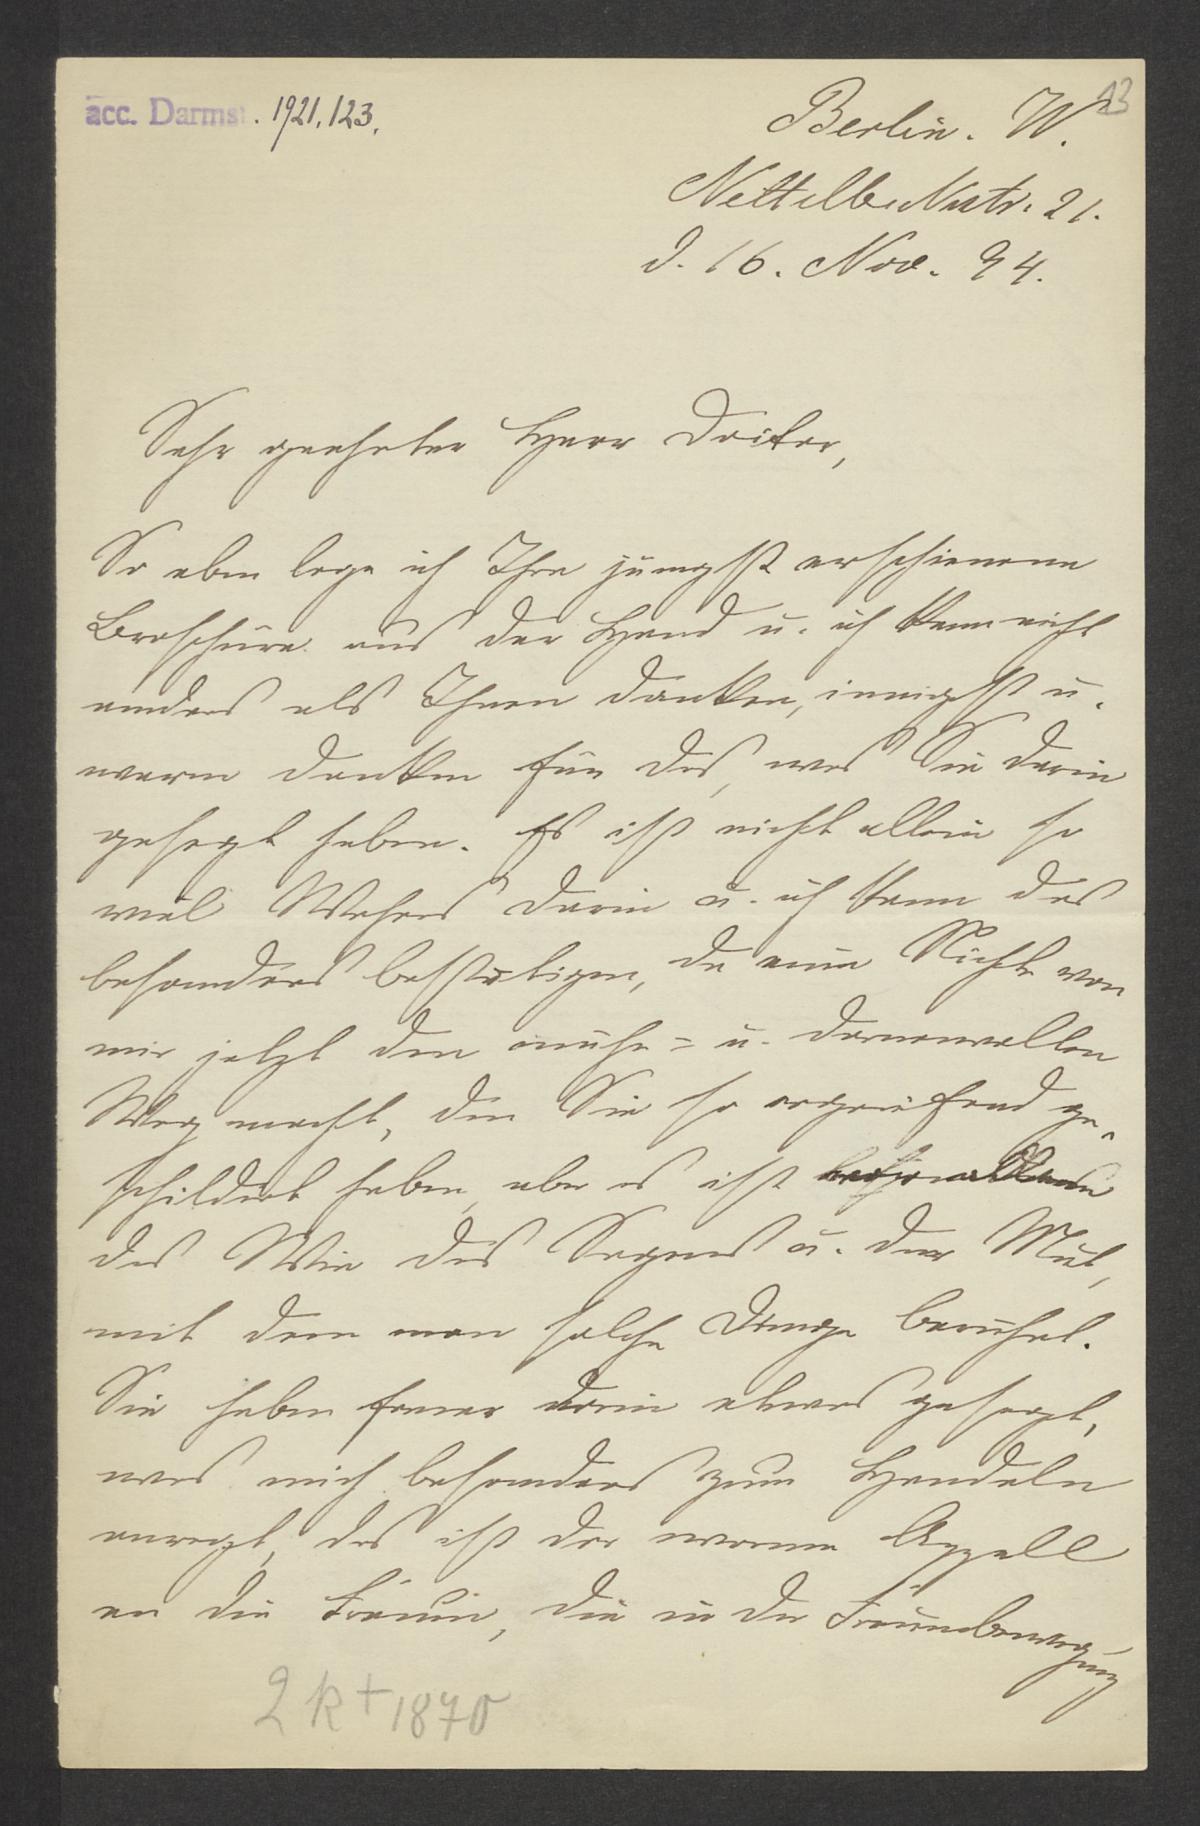 acc. Darmst. 1921.123.
13
Berlin. W.
Nettelbeckstr. 21.
d. 16. Nov. 94.
Sehr geehrter Herr Doctor,
So eben lege ich Ihre jüngst erschienene
Broschüre aus der Hand u. ich kann nicht
anders als Ihnen danken, innigst u.
warm danken für das, was Sie darin
gesagt haben. Es ist nicht allein so
viel Wahres darin u. ich kann das
besonders bestätigen, da eine Nichte von
mir jetzt den mühe- u. dornenvollen
Weg macht, den Sie so ergreifend ge-
schildert haben, aber es ist
das Wie des Sagens u. der Mut,
mit dem man solche Dinge berührt.
Sie haben ferner darin etwas gesagt,
was mich besonders zum Handeln
anregt, das ist der warme Appell
an die Frauen, die in der Frauenbewegung
2 k + 1870